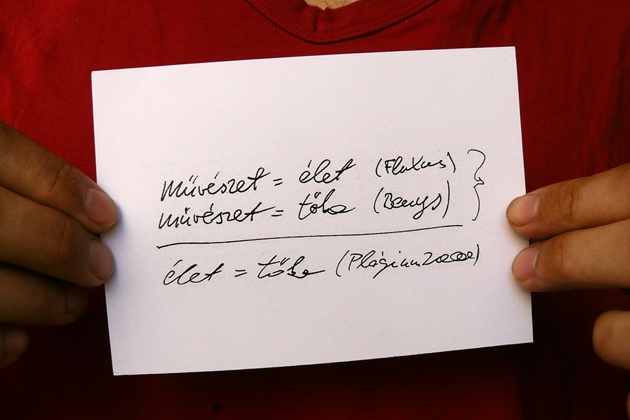 művészet = élet (Fluxus)
művészet = tőke (Beuys)
élet = tőke (Plágium2000)